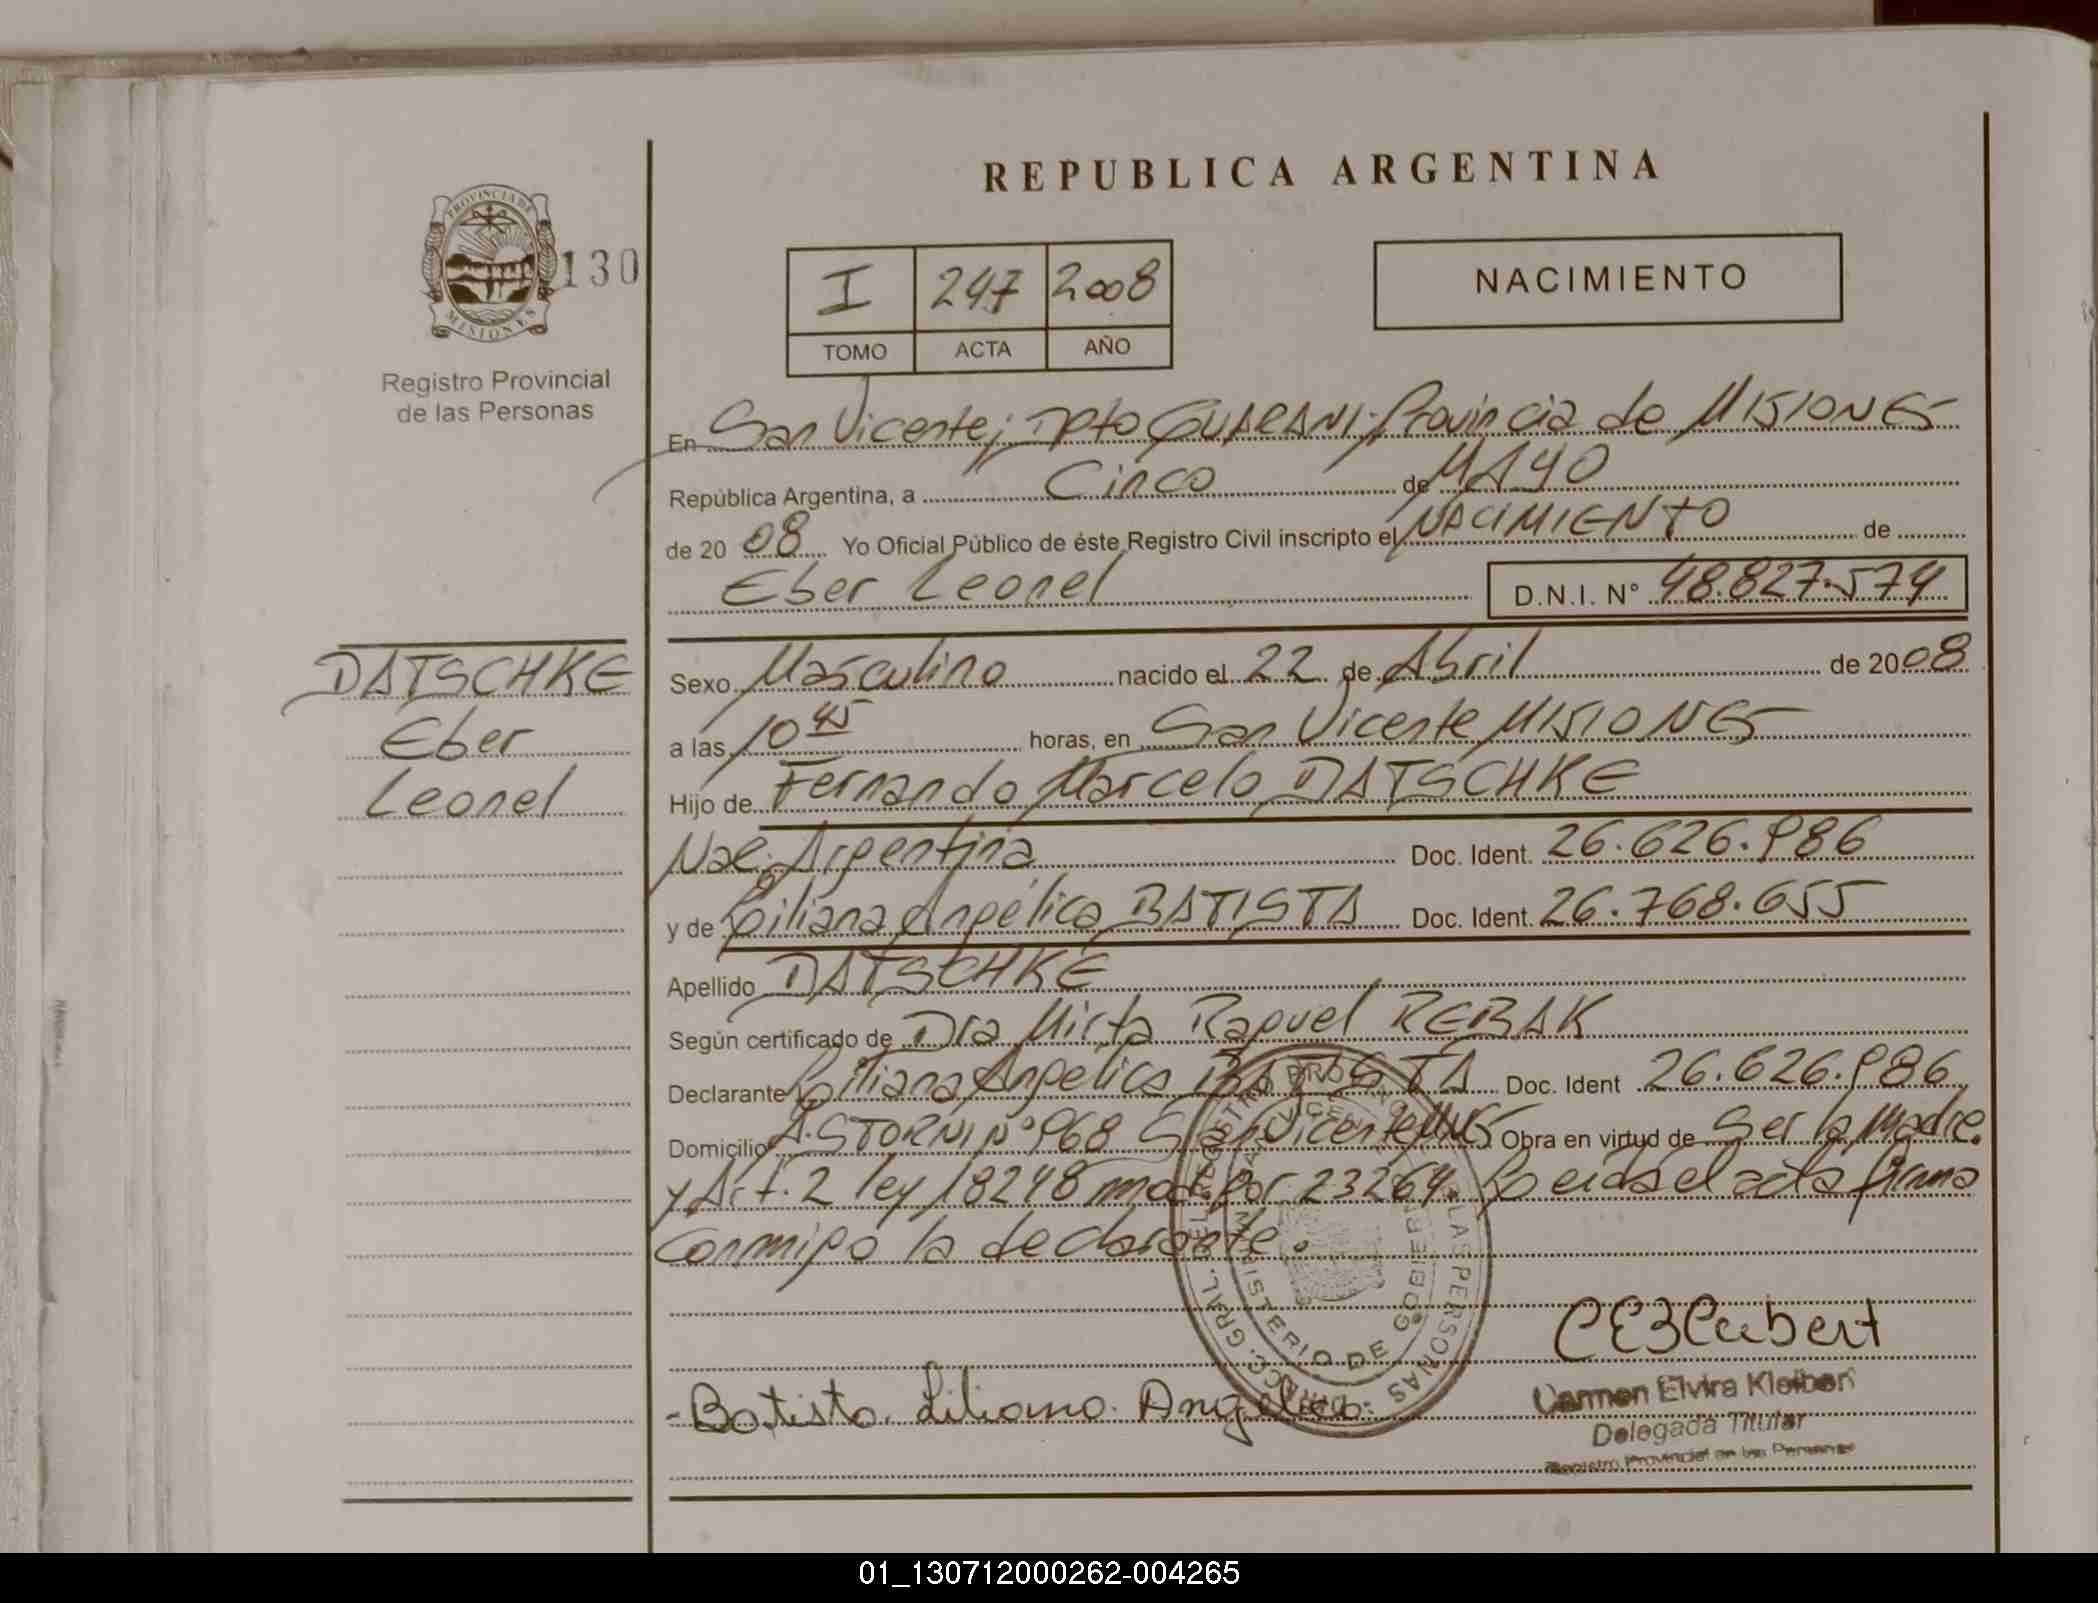 REPUBLICA ARGENTINA
PROVINCIA DE
MISIONES
130
Registro Provincial
de las Personas
I 247 2008
TOMO ACTA AÑO
NACIMIENTO
En San Vicente; Dpto GUARANI; Provincia de MISIONES
República Argentina, a Cinco de MAYO
de 20 08 Yo Oficial Público de éste Registro Civil inscripto el NACIMIENTO de
Eber Leonel D.N.I. Nº 48.827.574
DATSCHKE
Eber
Leonel
Sexo Masculino nacido el 22 de Abril de 2008
a las 10 45 horas, en San Vicente MISIONES
Hijo de Fernando Marcelo DATSCHKE
Nac. Argentina Doc. Ident. 26.626.986
y de Liliana Angélica BATISTA Doc. Ident. 26.768.655
Apellido DATSCHKE
Según certificado de Dra Mirta Raquel REBAK
Declarante Liliana Angélica BATISTA Doc. Ident 26.626.986
Domicilio A. STORNI Nº 968 San Vicente Mnes Obra en virtud de Ser la Madre.
y Art. 2 ley 18248 mod. por 23264. Leída el acta firma
conmigo la declarante.
DIRECC. GRAL. DEL REGISTRO PROV. DE LAS PERSONAS
MINISTERIO DE GOBIERNO
SAN VICENTE
- Batista. Liliana. Angelica.
Carmen Elvira Kleibert
Delegada Titular
Registro Provincial de las Personas
01_130712000262-004265